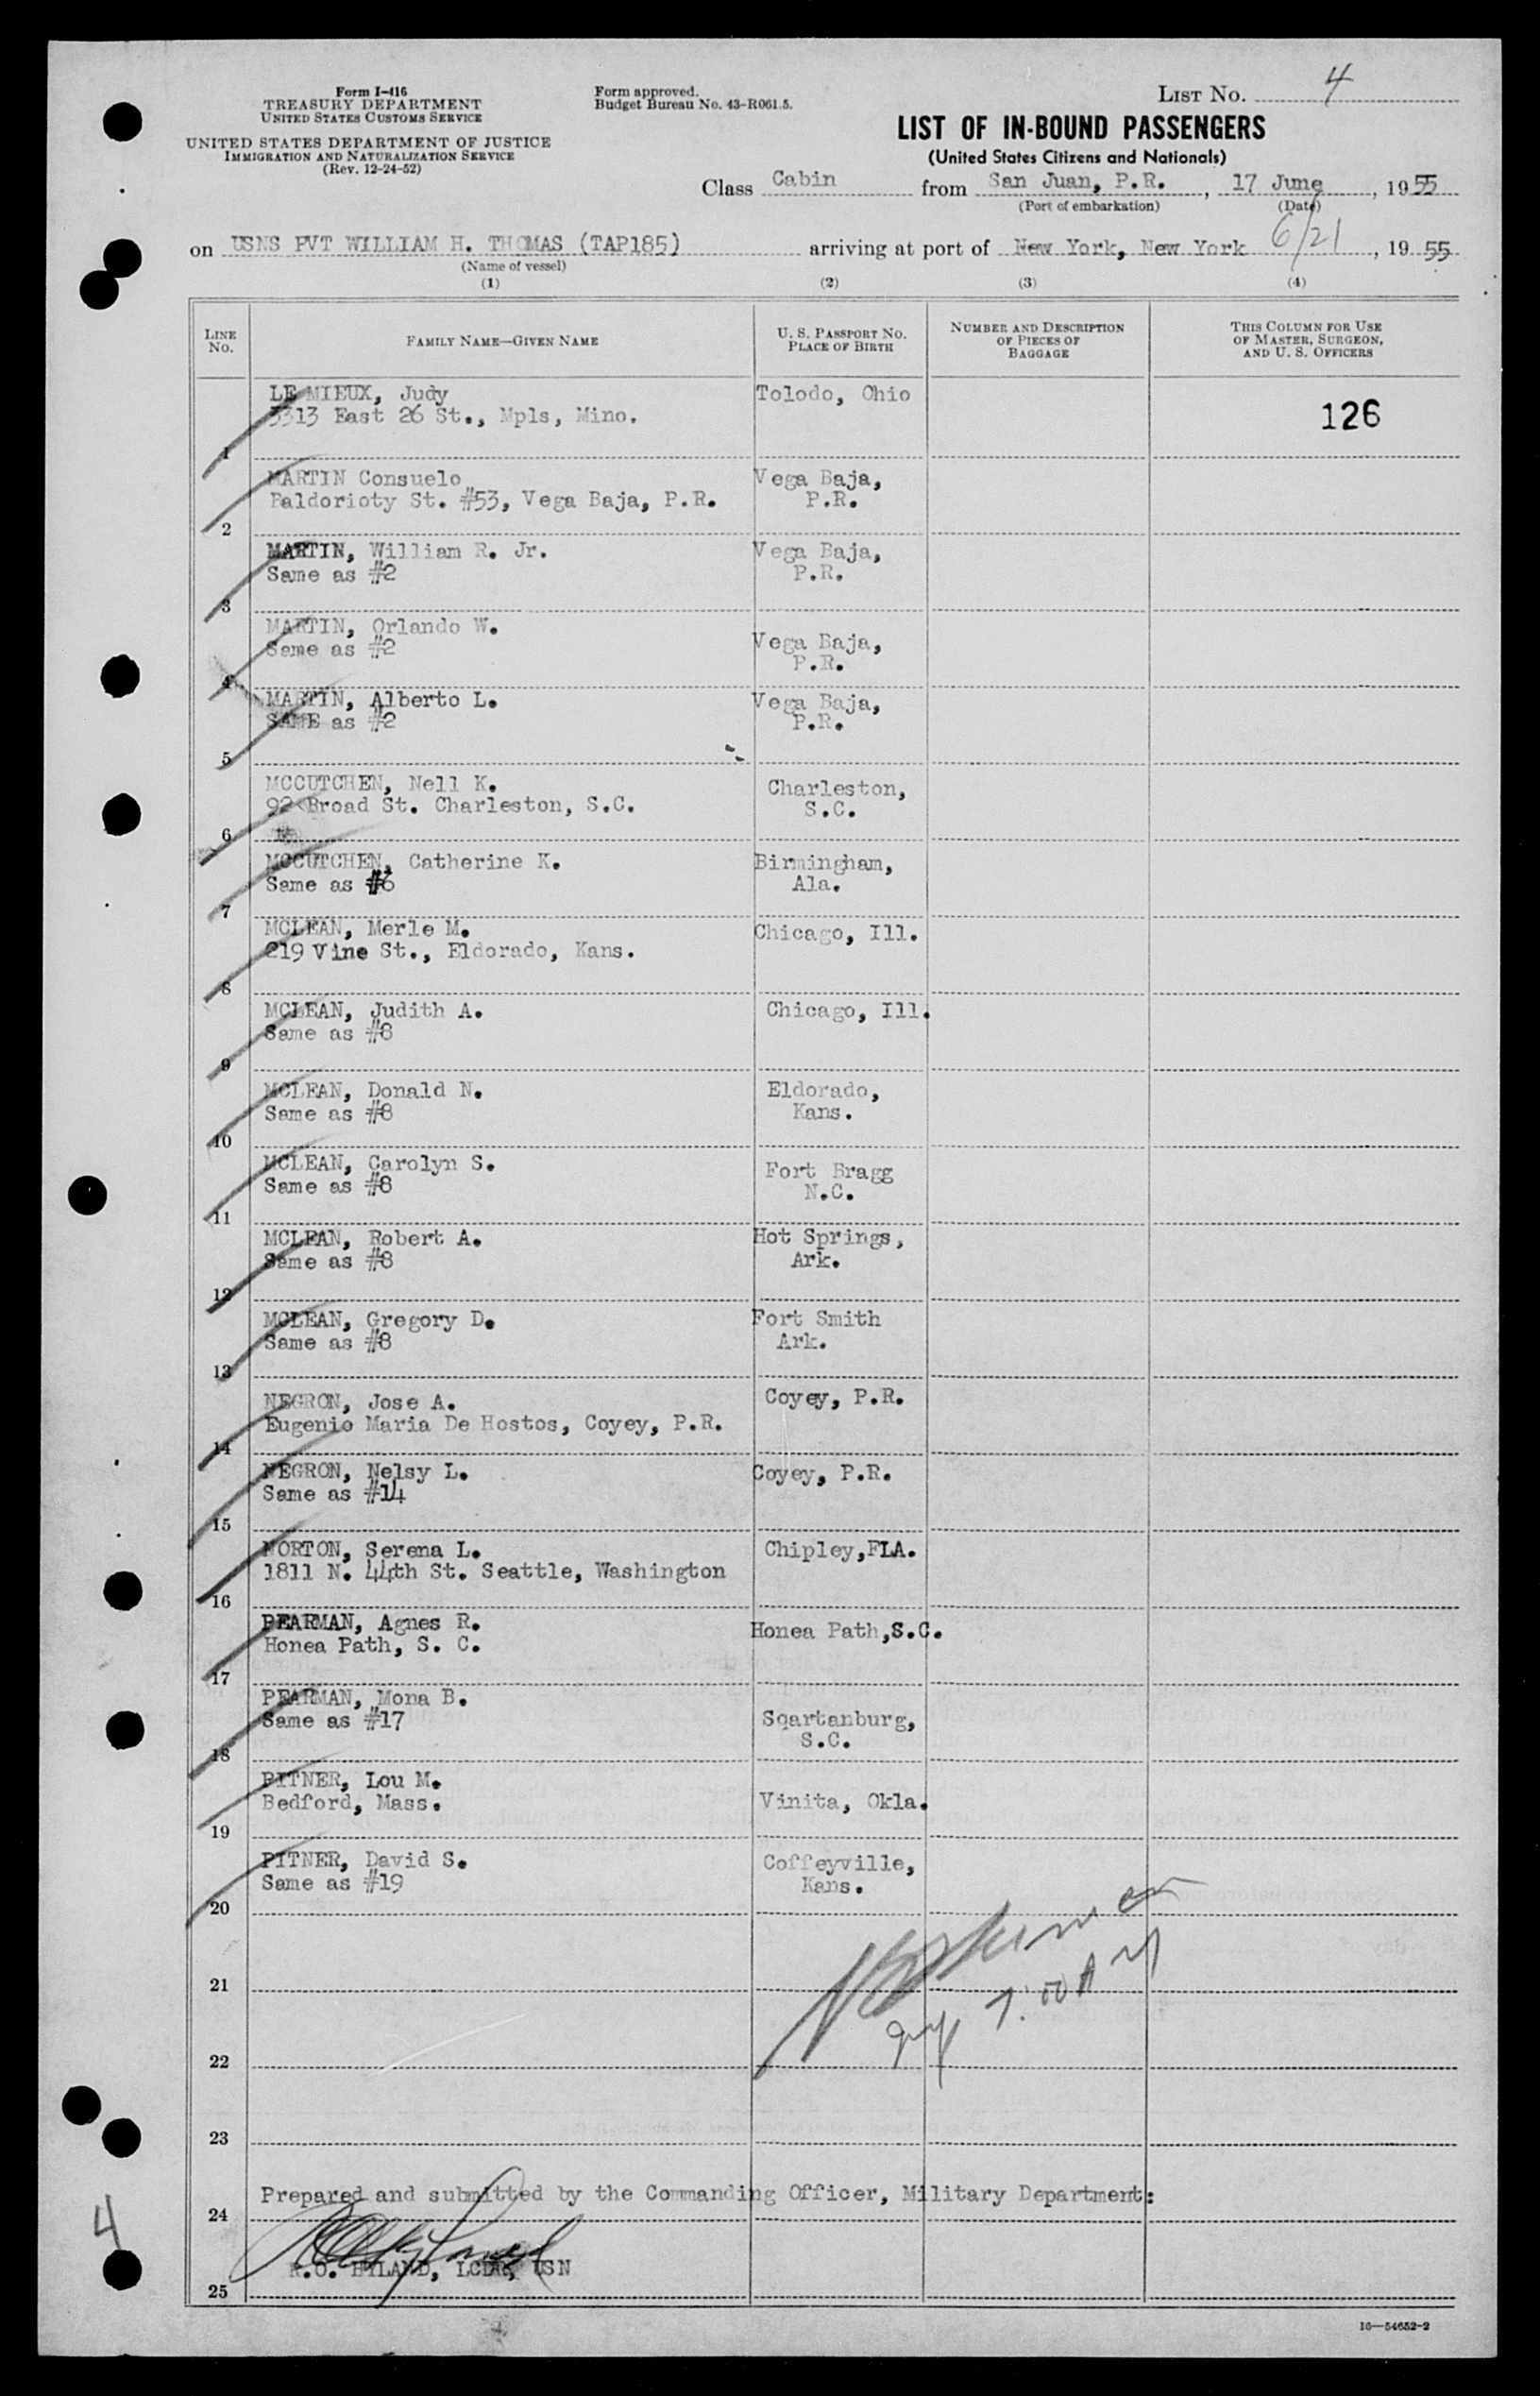 Form I-416
TREASURY DEPARTMENT
UNITED STATES CUSTOMS SERVICE
UNITED STATES DEPARTMENT OF JUSTICE
IMMIGRATION AND NATURALIZATION SERVICE
(Rev. 12-24-52)
Form approved.
Budget Bureau No. 43-R061.5.
LIST NO. 4
LIST OF IN-BOUND PASSENGERS
(United States Citizens and Nationals)
Class Cabin from San Juan, P.R., 17 June, 1955
(Port of embarkation) (Date)
on USNS PVT WILLIAM H. THOMAS (TAP185) arriving at port of New York, New York 6/21, 1955
(Name of vessel)
(1) (2) (3) (4)
LINE NO.
FAMILY NAME—GIVEN NAME
U. S. PASSPORT NO.
PLACE OF BIRTH
NUMBER AND DESCRIPTION
OF PIECES OF
BAGGAGE
THIS COLUMN FOR USE
OF MASTER, SURGEON,
AND U. S. OFFICERS
LE MIEUX, Judy Tolodo, Ohio
3313 East 26 St., Mpls, Mino. 126
1
MARTIN Consuelo Vega Baja,
Baldorioty St. #53, Vega Baja, P.R. P.R.
2
MARTIN, William R. Jr. Vega Baja,
Same as #2 P.R.
3
MARTIN, Orlando W. Vega Baja,
Same as #2 P.R.
4
MARTIN, Alberto L. Vega Baja,
SAME as #2 P.R.
5
MCCUTCHEN, Nell K. Charleston,
92 Broad St. Charleston, S.C. S.C.
6
MCCUTCHEN, Catherine K. Birmingham,
Same as #6 Ala.
7
MCLEAN, Merle M. Chicago, Ill.
219 Vine St., Eldorado, Kans.
8
MCLEAN, Judith A. Chicago, Ill.
Same as #8
9
MCLEAN, Donald N. Eldorado,
Same as #8 Kans.
10
MCLEAN, Carolyn S. Fort Bragg
Same as #8 N.C.
11
MCLEAN, Robert A. Hot Springs,
Same as #8 Ark.
12
MCLEAN, Gregory D. Fort Smith
Same as #8 Ark.
13
NEGRON, Jose A. Coyey, P.R.
Eugenio Maria De Hostos, Coyey, P.R.
14
NEGRON, Nelsy L. Coyey, P.R.
Same as #14
15
NORTON, Serena L. Chipley,FLA.
1811 N. 44th St. Seattle, Washington
16
PEARMAN, Agnes R. Honea Path,S.C.
Honea Path, S. C.
17
PEARMAN, Mona B.
Same as #17 Sqartanburg,
S.C.
18
PITNER, Lou M.
Bedford, Mass. Vinita, Okla.
19
PITNER, David S. Coffeyville,
Same as #19 Kans.
20
21
7:00 AM
22
23
Prepared and submitted by the Commanding Officer, Military Department:
24
R.O. HYLAND, LCDR, USN
25
4
16—54652-2